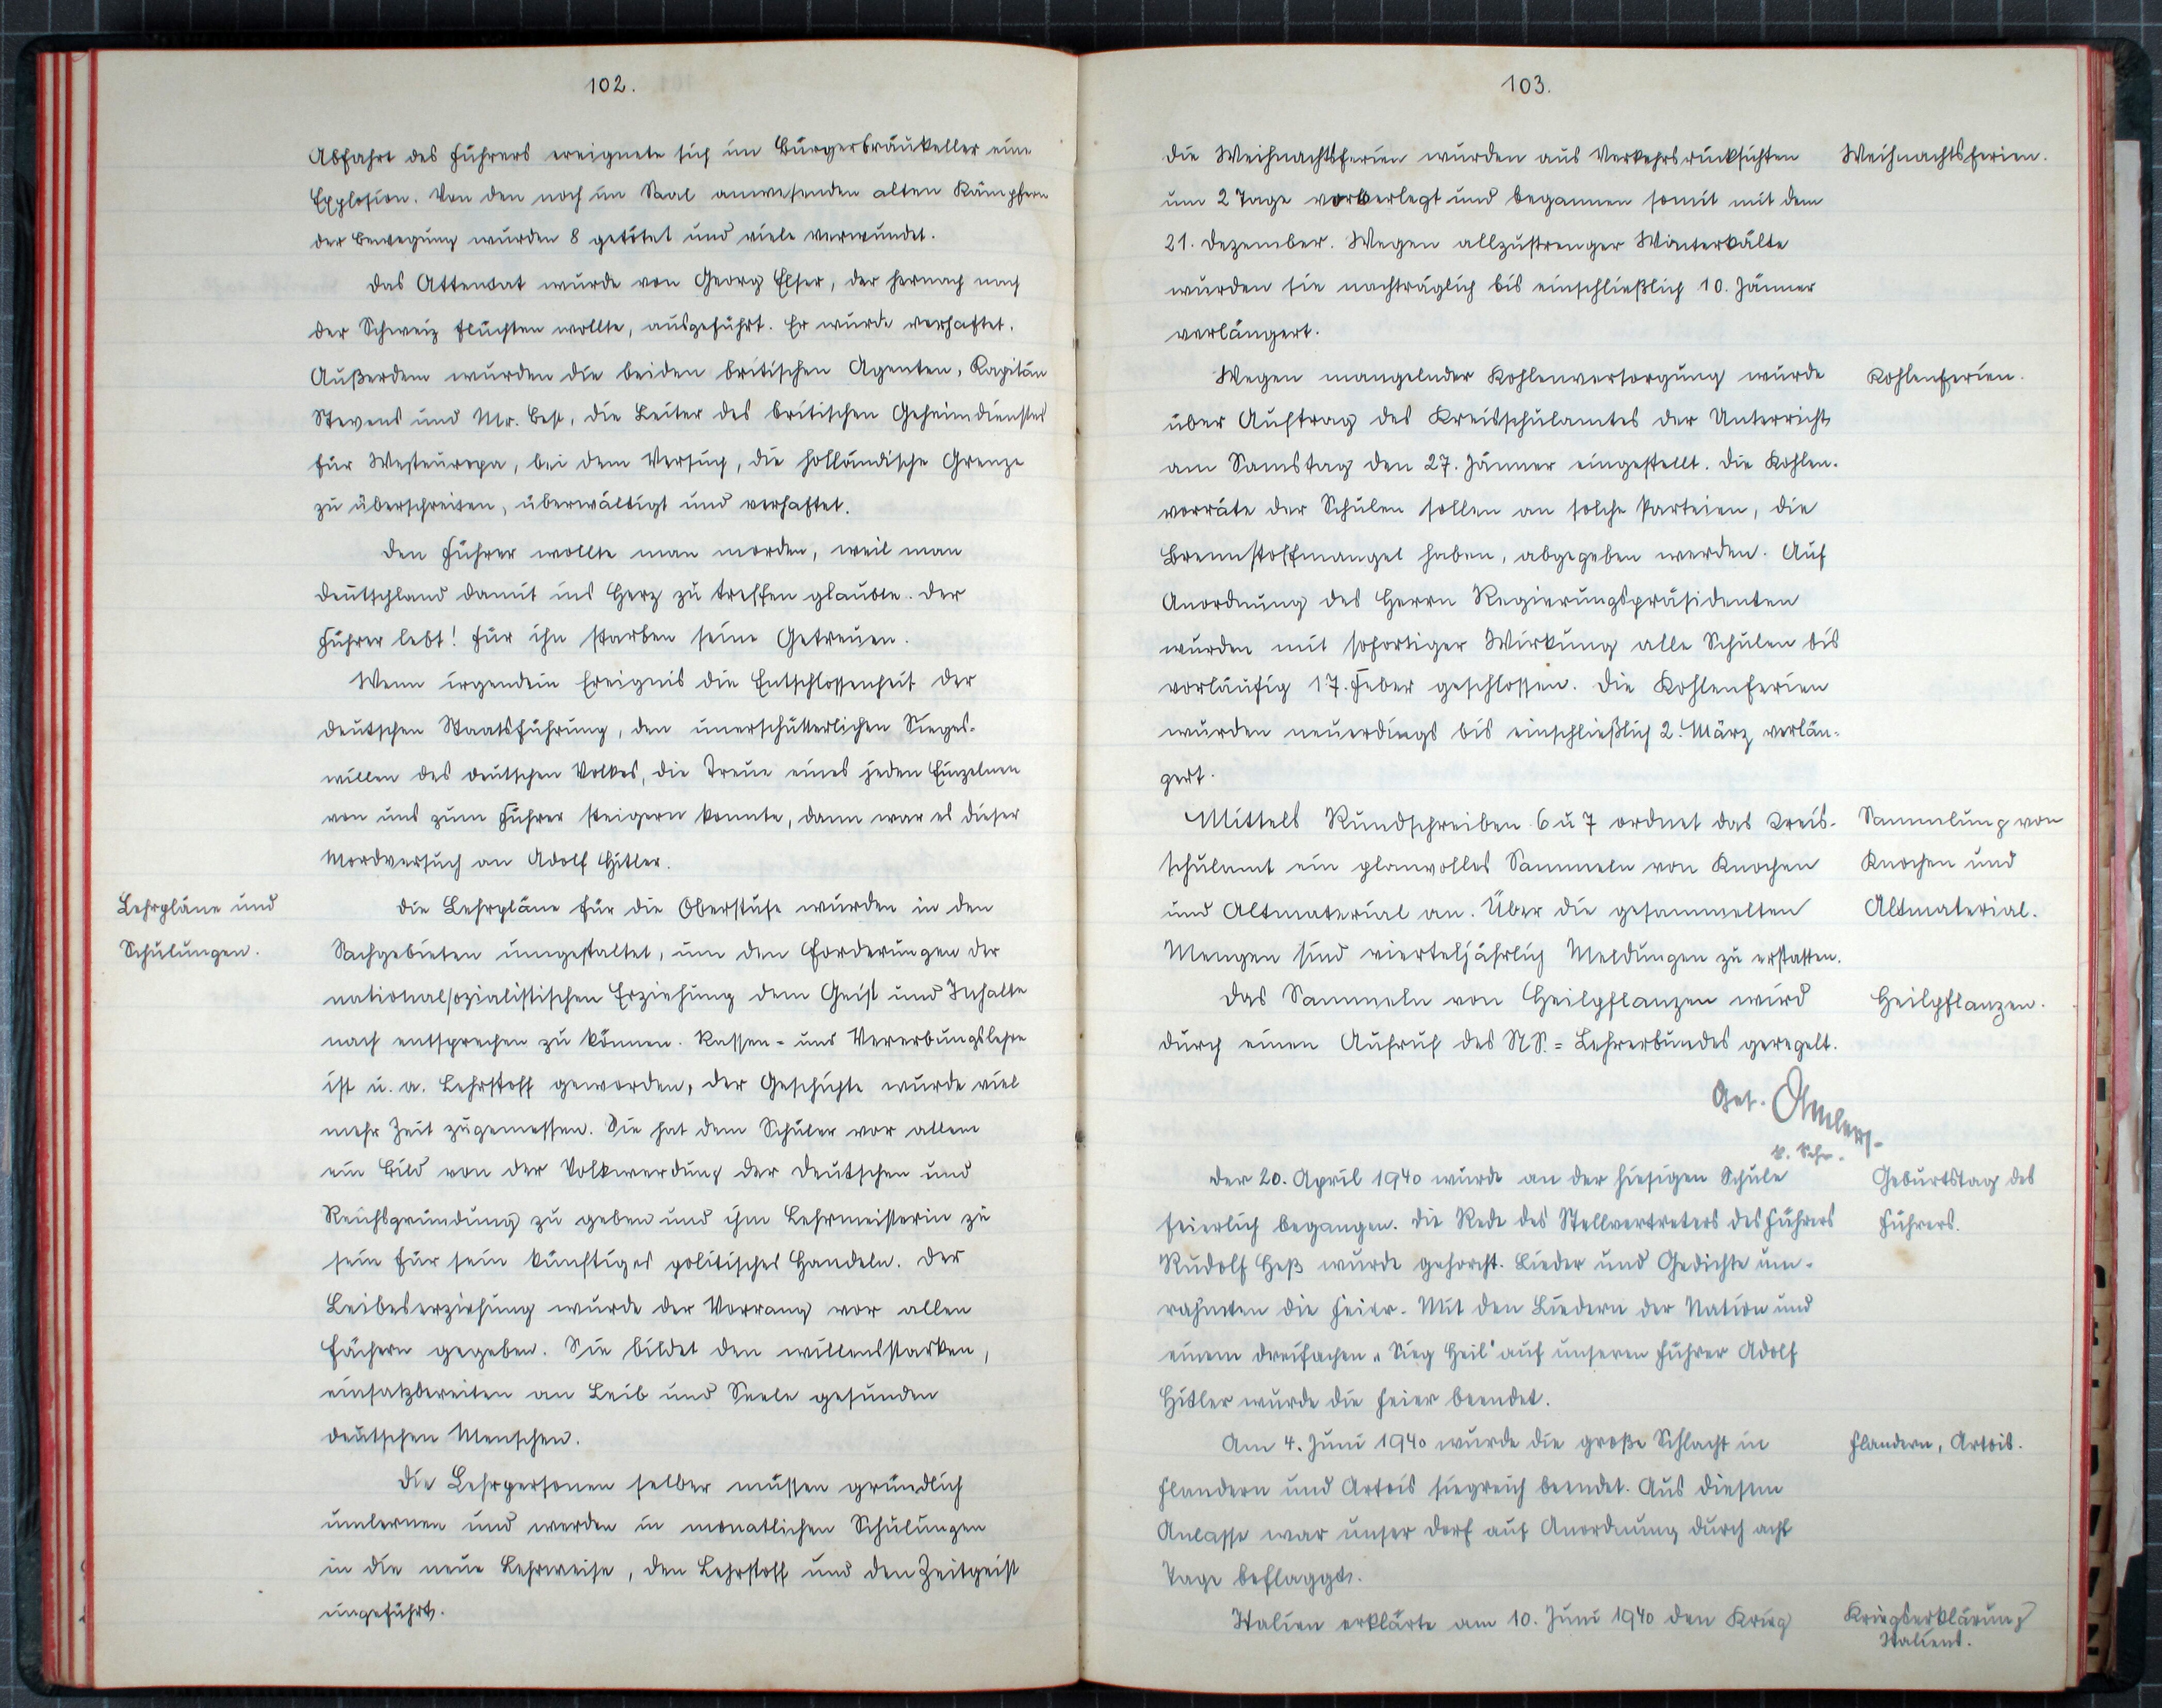 102.
Abfahrt des Führers ereignete sich im Bürgerbräukeller eine
Explosion. Von den noch im Saal anwesenden alten Kämpfern
der Bewegung wurden 8 getötet und viele verwundet.
Das Attentat wurde von Georg Elser, der hernach nach
der Schweiz flüchten wollte, ausgeführt. Er wurde verhaftet.
Außerdem wurden die beiden britischen Agenten, Kapitän
Stevens und Mr. Best, die Leiter des britischen Geheimdienstes
für Westeuropa, bei dem Versuch, die holländische Grenze
zu überschreiten, überwältigt und verhaftet.
Den Führer wollte man morden, weil man
Deutschland damit ins Herz zu treffen glaubte. Der
Führer lebt! Für ihn starben seine Getreuen.
Wenn irgendein Ereignis die Entschlossenheit der
deutschen Staatsführung, den unerschütterlichen Sieges-
willen des deutschen Volkes, die Treue eines jeden Einzelnen
von uns zum Führer steigern konnte, dann war es dieser
Mordversuch an Adolf Hitler.
Lehrpläne und
Schulungen.
Die Lehrpläne für die Oberstufe wurden in den
Sachgebieten umgestaltet, um den Forderungen der
nationalsozialistischen Erziehung dem Geist und Inhalte
nach entsprechen zu können. Rassen- und Vererbungslehre
ist u. a. Lehrstoff geworden, der Geschichte wurde viel
mehr Zeit zugemessen. Sie hat dem Schüler vor allem
ein Bild von der Volkwerdung der Deutschen und
Reichsgründung zu geben und ihm Lehrmeisterin zu
sein für sein künftiges politisches Handeln. Der
Leibeserziehung wurde der Vorrang vor allen
Fächern gegeben. Sie bildet den willensstarken,
einsatzbereiten an Leib und Seele gesunden
deutschen Menschen.
Die Lehrpersonen selber müssen gründlich
umlernen und werden in monatlichen Schulungen
in die neue Lehrweise, den Lehrstoff und den Zeitgeist
eingeführt.
103.
Die Weihnachtsferien wurden aus Verkehrsrücksichten
um 2 Tage vorverlegt und begannen somit mit dem
21. Dezember. Wegen allzustrenger Winterkälte
wurden sie nachträglich bis einschließlich 10. Jänner
verlängert.
Weihnachtsferien.
Wegen mangelnder Kohlenversorgung wurde
über Auftrag des Kreisschulamtes der Unterricht
am Samstag den 27. Jänner eingestellt. Die Kohlen-
vorräte der Schulen sollen an solche Parteien, die
Brennstoffmangel haben, abgegeben werden. Auf
Anordnung des Herrn Regierungspräsidenten
wurden mit sofortiger Wirkung alle Schulen bis
vorläufig 17. Feber geschlossen. Die Kohlenferien
wurden neuerdings bis einschließlich 2. März verlän-
gert.
Kohlenferien.
Mittels Rundschreiben 6 u 7 ordnet das Kreis-
schulamt ein planvolles Sammeln von Knochen
und Altmaterial an. Über die gesammelten
Mengen sind vierteljährlich Meldungen zu erstatten.
Sammlung von
Knochen und
Altmaterial.
Das Sammeln von Heilpflanzen wird
durch einen Aufruf des NS.=Lehrerbundes geregelt.
Heilpflanzen.
Der 20. April 1940 wurde an der hiesigen Schule
feierlich begangen. Die Rede des Stellvertreters des Führers
Rudolf Heß wurde gehorcht. Lieder und Gedichte um-
rahmten die Feier. Mit den Liedern der Nation und
einem dreifachen „Sieg Heil" auf unseren Führer Adolf
Hitler wurde die Feier beendet.
Geburtstag des
Führers.
Am 4. Juni 1940 wurde die große Schlacht in
Flandern und Artois siegreich beendet. Aus diesem
Anlasse war unser Dorf auf Anordnung durch acht
Tage beflaggt.
Flandern, Artois.
Italien erklärte am 10. Juni 1940 den Krieg
Kriegserklärung
Italiens.